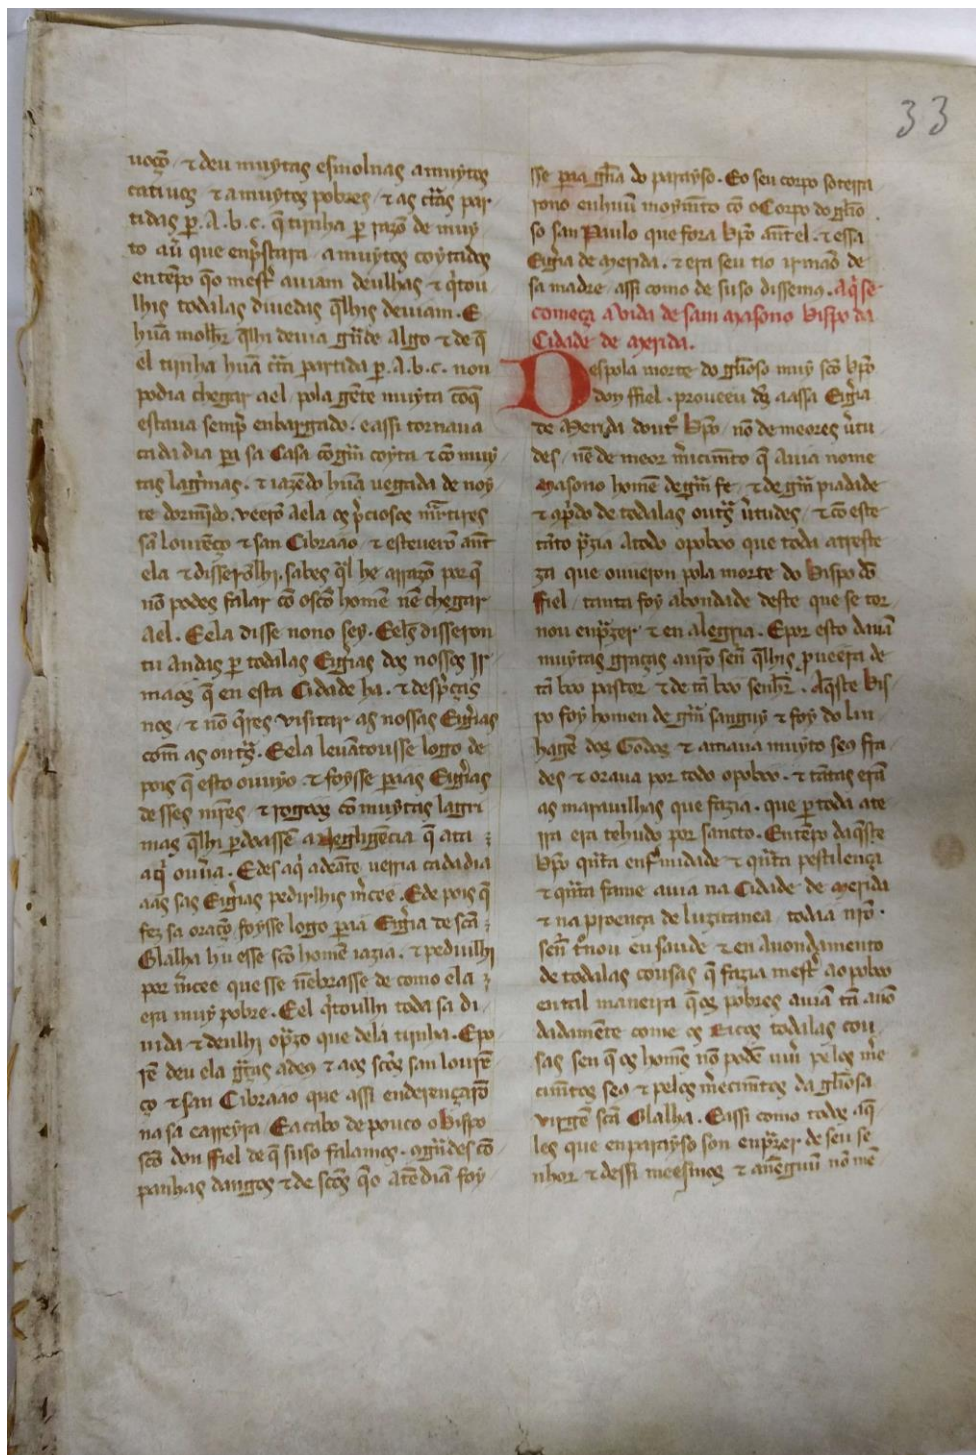 33
uoçõ / ⁊ deu muytas esmolnas a muytos
catiuos ⁊ a muytos pobres / ⁊ as cr̃as par
tidas p̱ .A.b.c. q̃ tijnha p̱ razõ de muy
to au̓ que enp̃stara / a muytos coytados
en tẽpo q̃o mest̃ auiam deulhas ⁊ q̃tou
lhis todalas diuedas q̃lhis deuiam. E
hũa molh̃r q̃lhi deuia gñde algo ⁊ de q̃
el tijnha hũa cr̃a partida p̱ .A.b.c. non
podia chegar a el / pola gẽte muyta cõ q̃
estaua semp̃ enbargado. e assi tornaua
cada dia pa sa Casa cõ gm̃ coyta ⁊ cõ muy
tas lagm̃as. ⁊ iazẽdo hũa uegada de noy
te dormĩdo. veerõ a ela os p̃ciosos mr̃tires
sã lourẽço ⁊ san Cibraao / ⁊ esteuerõ ant̃
ela ⁊ disserõlhi. sabes q̃l he a rrazõ por q̃
nõ podes falar cõ o sc̃o homẽ nẽ chegar
a el. E ela disse nono sey. E el̃s disseron
tu andas p̱ todalas Eigr̃ias dos nossos Jr
maos q̃ en esta Cidade ha. ⁊ desp̃ças
nos / ⁊ nõ q̃res visitar as nossas Eigr̃ias
com̃ as outr̃s. E ela leuãtousse logo de
pois q̃ esto ouuyo ⁊ foysse paas Eigr̃ias
desses mr̃es / ⁊ rogoos cõ muytas lagri
mas q̃lhi p̱doassẽ a negligẽcia q̃ ata
aq̃ ouu̓a. E des aq̃ adeãte uerria cada dia
aas sas Eigr̃ias pedirlhis m̃cee. E de pois q̃
fez sa oraçõ foysse logo paa Eigr̃ia de sc̃a
Glalha hu esse sc̃o homẽ iazia. ⁊ pediulhi
por m̃cee que sse nẽbrasse de como ela
era muy pobre. E el q̃toulhi toda sa di
uida ⁊ deulhi o p̃zo que dela tijnha. E po
rẽ deu ela gr̃as a deus ⁊ aos sc̃os san lourẽ
ço ⁊ san Cibraao que assi enderençarõ
na sa carreyra E a cabo de pouco o Bispo
sc̃o don ffiel de q̃ suso falamos. cõ gñdes cõ
panhas dangos ⁊ de sc̃os q̃o atẽdiã foy
sse paa gl̃ia do parayso. E o seu corpo soterra
rono en huũ moymẽto cõ o Corpo do gl̃io
so san Paulo que fora bp̃o ant̃el. ⁊ essa
Eigr̃ia de Merida. ⁊ era seu tio irmaõ de
sa madre assi como de suso dissemos. Aq̃ se
começa a vida de sam Masono Bispo da
Cidade de Merida.
Despola morte do gl̃ioso muy sc̃o bp̃o
don ffiel. proueeu ds̃ a assa Eigr̃ia
de Merida doutr̃o bp̃o / nõ de meores u̓tu
des / nẽ de meor m̃icimẽto q̃ auia nome
Masono homẽ de gm̃ fe / ⁊ de gm̃ piadade
⁊ cõp̱do de todalas outr̃s u̓tudes / ⁊ cõ este
tãto p̃zia a todo o poboo que toda a triste
za que ouueron pola morte do Bispo dõ
ffiel / tanta foy a bondade deste que se tor
nou en p̃zer ⁊ en alegria. E por esto dauã
muytas graças a nr̃o señ q̃lhis p̱ueera de
tã boo pastor ⁊ de tã boo senh̃r. Aq̃ste bis
po foy homen de gm̃ sanguy ⁊ foy do lin
hagẽ dos Godos ⁊ amaua muyto seus fra
des ⁊ oraua por todo o poboo. ⁊ tãtas erã
as marauilhas que fazia. que p̱ toda a te
rra era tehudo por sancto. En tẽpo daq̃ste
bp̃o q̃nta enf̃midade ⁊ q̃nta pestilença
⁊ q̃nta fame auia na Cidade de Merida
⁊ na proença de luzitanea / todia nr̃o
señ t̃nou en saude ⁊ en auondamento
de todalas cousas q̃ fazia mest̃ ao poboo
en tal maneira q̃ os pobres auiã tã auõ
dadamẽte come os Ricos todalas cou
sas sen q̃ os homẽs nõ podẽ uiu̓ pelos m̃e
cimẽtos seus ⁊ pelos m̃ecimẽtos da gl̃iosa
virgẽ sc̃a Glalha. E assi como todos aq̃
les que en parayso son en p̃zer de seu se
nhor ⁊ dessi meesmos ⁊ a nẽguũ nõ mẽ